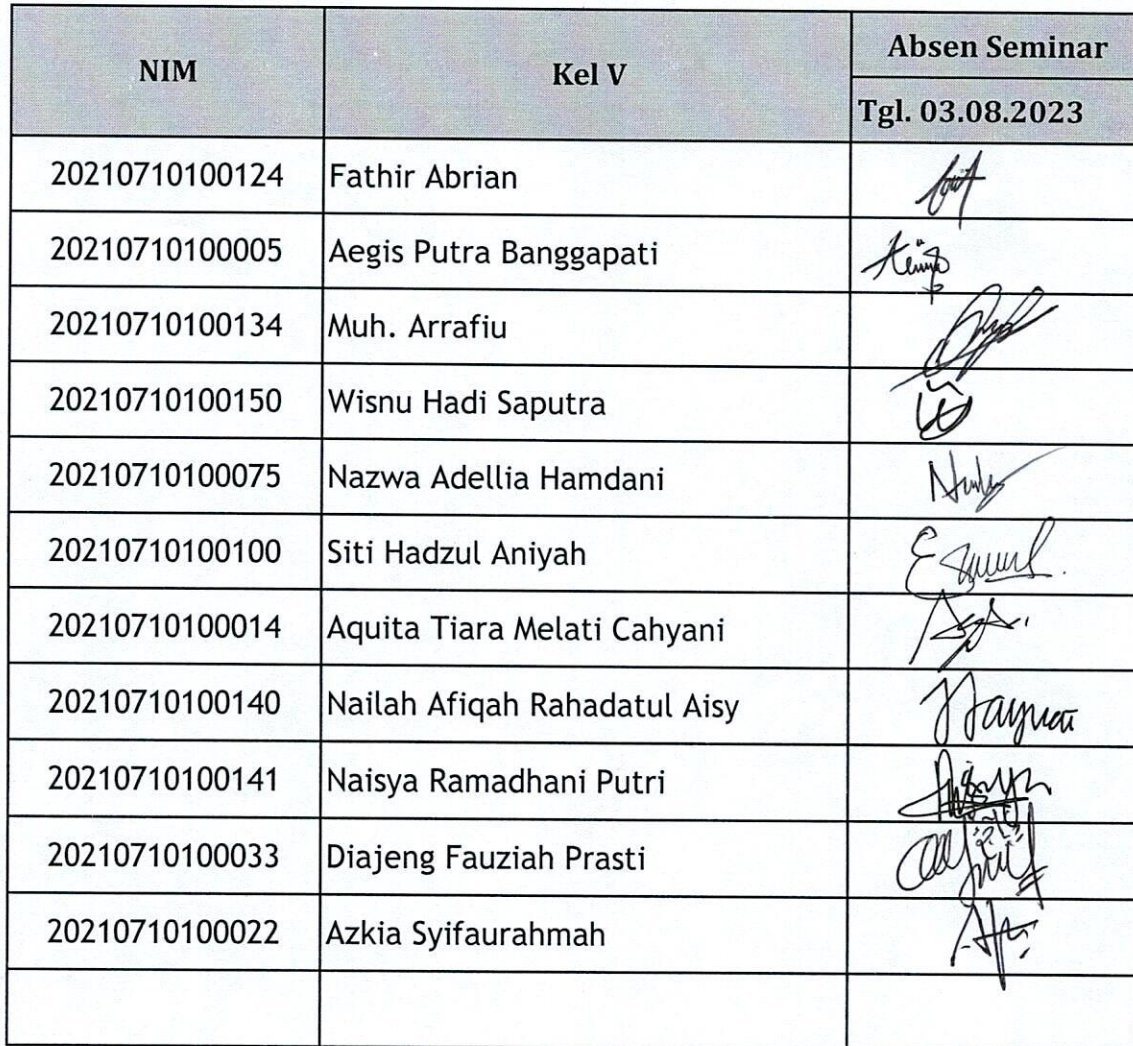 NIM Kel V Absen Seminar
Tgl. 03.08.2023
20210710100124 Fathir Abrian
20210710100005 Aegis Putra Banggapati
20210710100134 Muh. Arrafiu
20210710100150 Wisnu Hadi Saputra
20210710100075 Nazwa Adellia Hamdani
20210710100100 Siti Hadzul Aniyah
20210710100014 Aquita Tiara Melati Cahyani
20210710100140 Nailah Afiqah Rahadatul Aisy
20210710100141 Naisya Ramadhani Putri
20210710100033 Diajeng Fauziah Prasti
20210710100022 Azkia Syifaurahmah